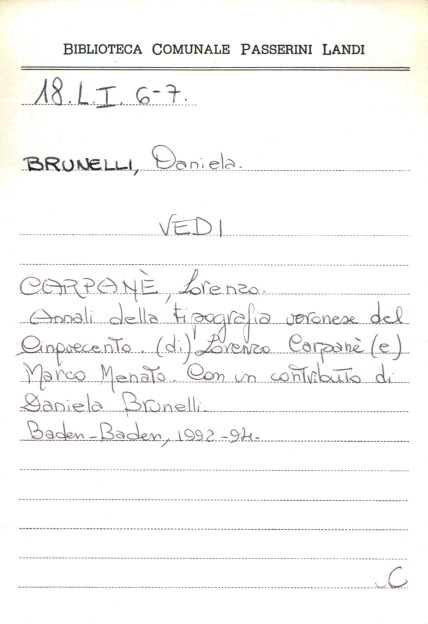 BIBLIOTECA COMUNALE PASSERINI LANDI
18.L.I. 6-7.
BRUNELLI, Daniela.
VEDI
CARPANÈ, Lorenzo.
Annali della tipografia veronese del
Cinquecento. (di) Lorenzo Carpanè (e)
Marco Menato. Con un contributo di
Daniela Brunelli.
Baden-Baden, 1992-94.
C